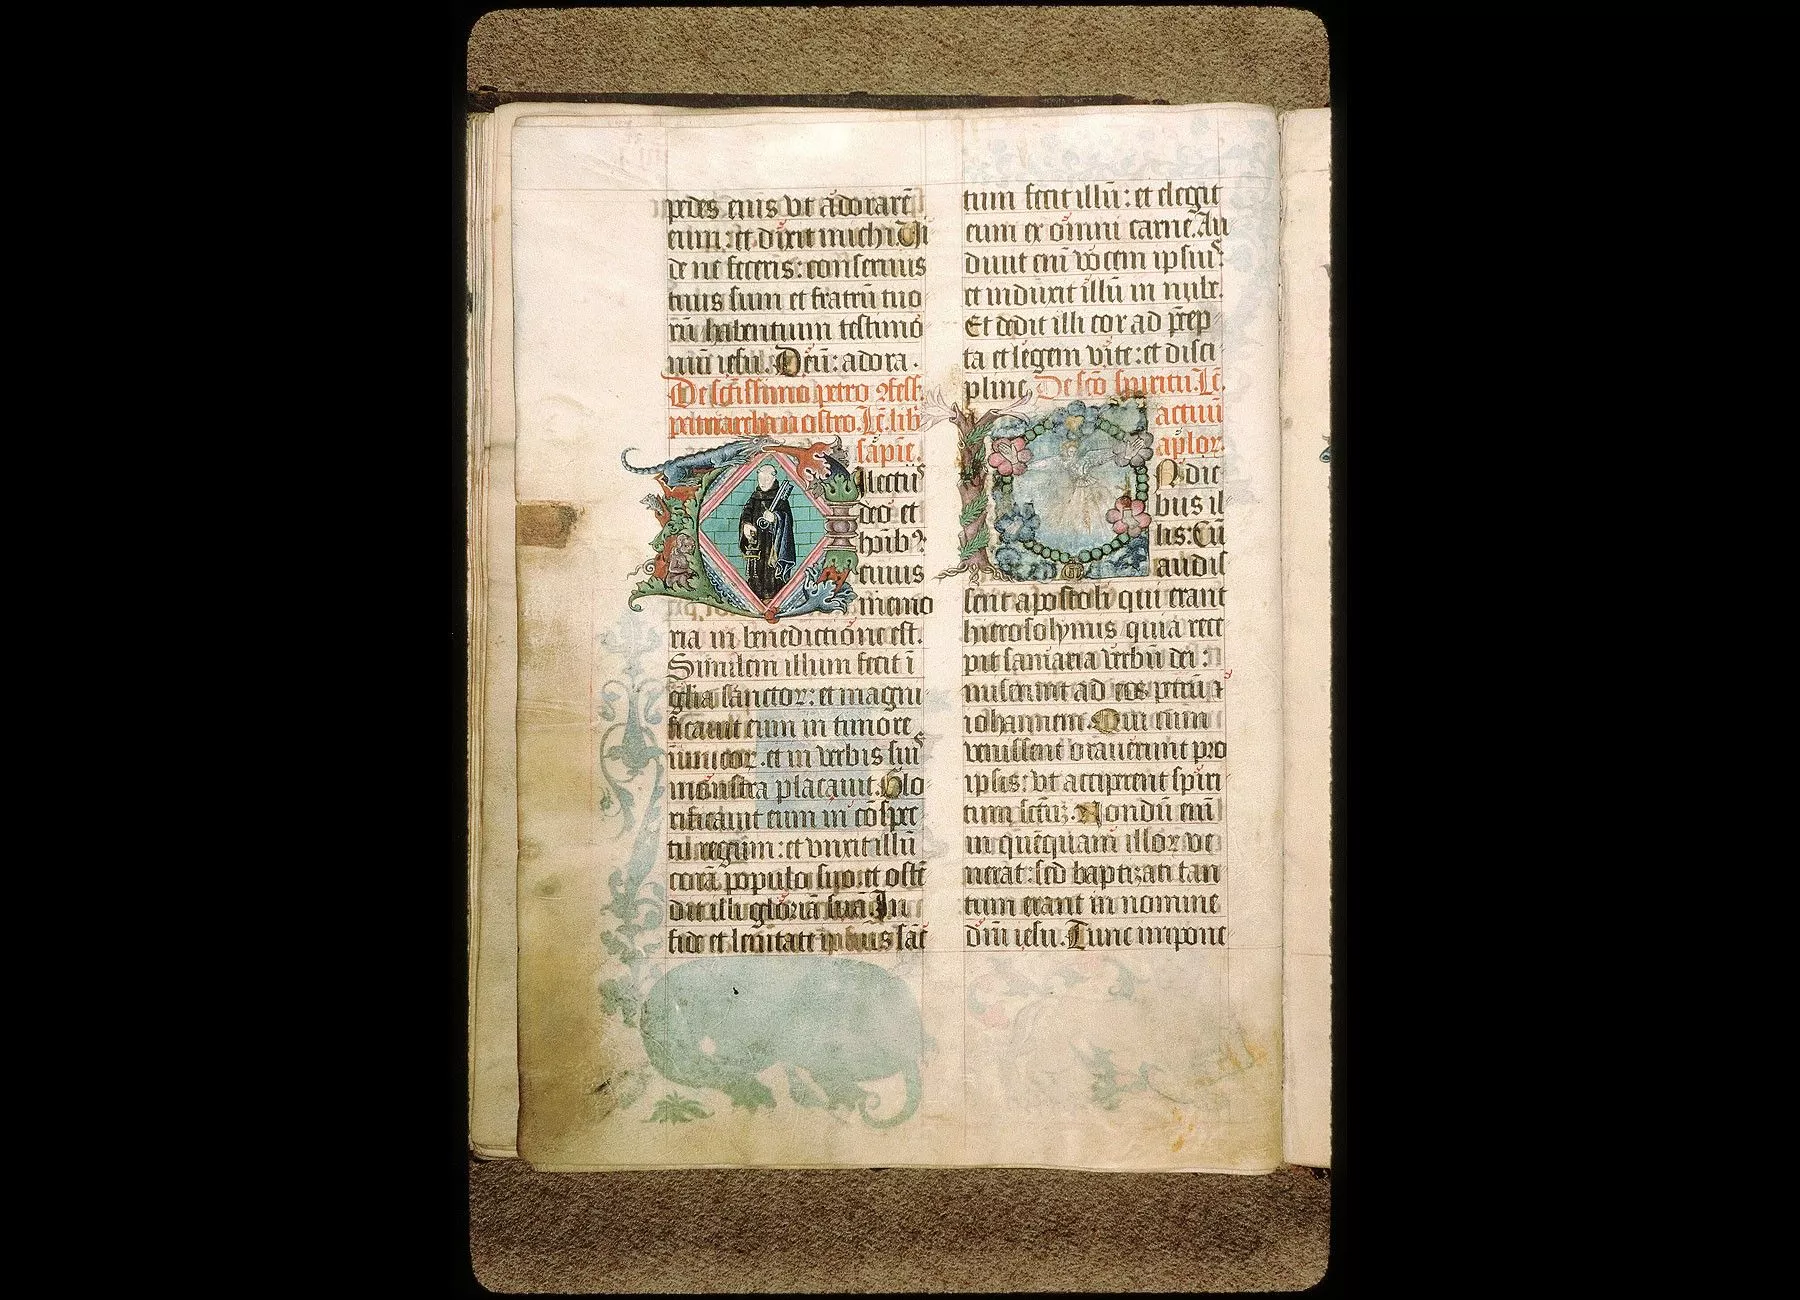 pedes eius vt adorarē
eum: et dixit michi. Ui
de ne feceris: conseruus
tuus sum et fratrū tuo
rū habentium testimo
niū iesu. Deū: adora.
De sctissimo petro ꝯfess.
patriarcha nostro. Lc̄. lib
sapiē.
ilectus
deo et
hoīb⁹:
cuius
memo
ria in benedictione est.
Similem illum fecit ī
glīa sanctor: et magni
ficauit eum in timore
inimicor. et in verbis suis
monstra placauit. Glo
rificauit eum in cōspec
tu regum: et vnxit illū
corā populo suo. et ostē
dit illi gloriā suā. In
fide et lenitate ipsius sāc
tum fecit illū: et elegit
eum ex omni carne. Au
diuit enī vocem ipsius:
et induxit illū in nube.
Et dedit illi cor ad p̄cep
ta et legem vite: et disci
pline De sc̄o spiritu. Lc̄.
actuū
aplor.
N die
bus il
lis: Cū
audis
sent apostoli qui erant
hierosolymis quia rece
pit samaria verbū dei:
miserunt ad eos petrū et
iohannem. Qui cum
venissent orauerunt pro
ipsis: vt acciperent spiri
tum sctūz. Nondū enī
in quēquam illor ve
nerat: sed baptizati tan
tum erant in nomine
dn̄i iesu. Tunc impone